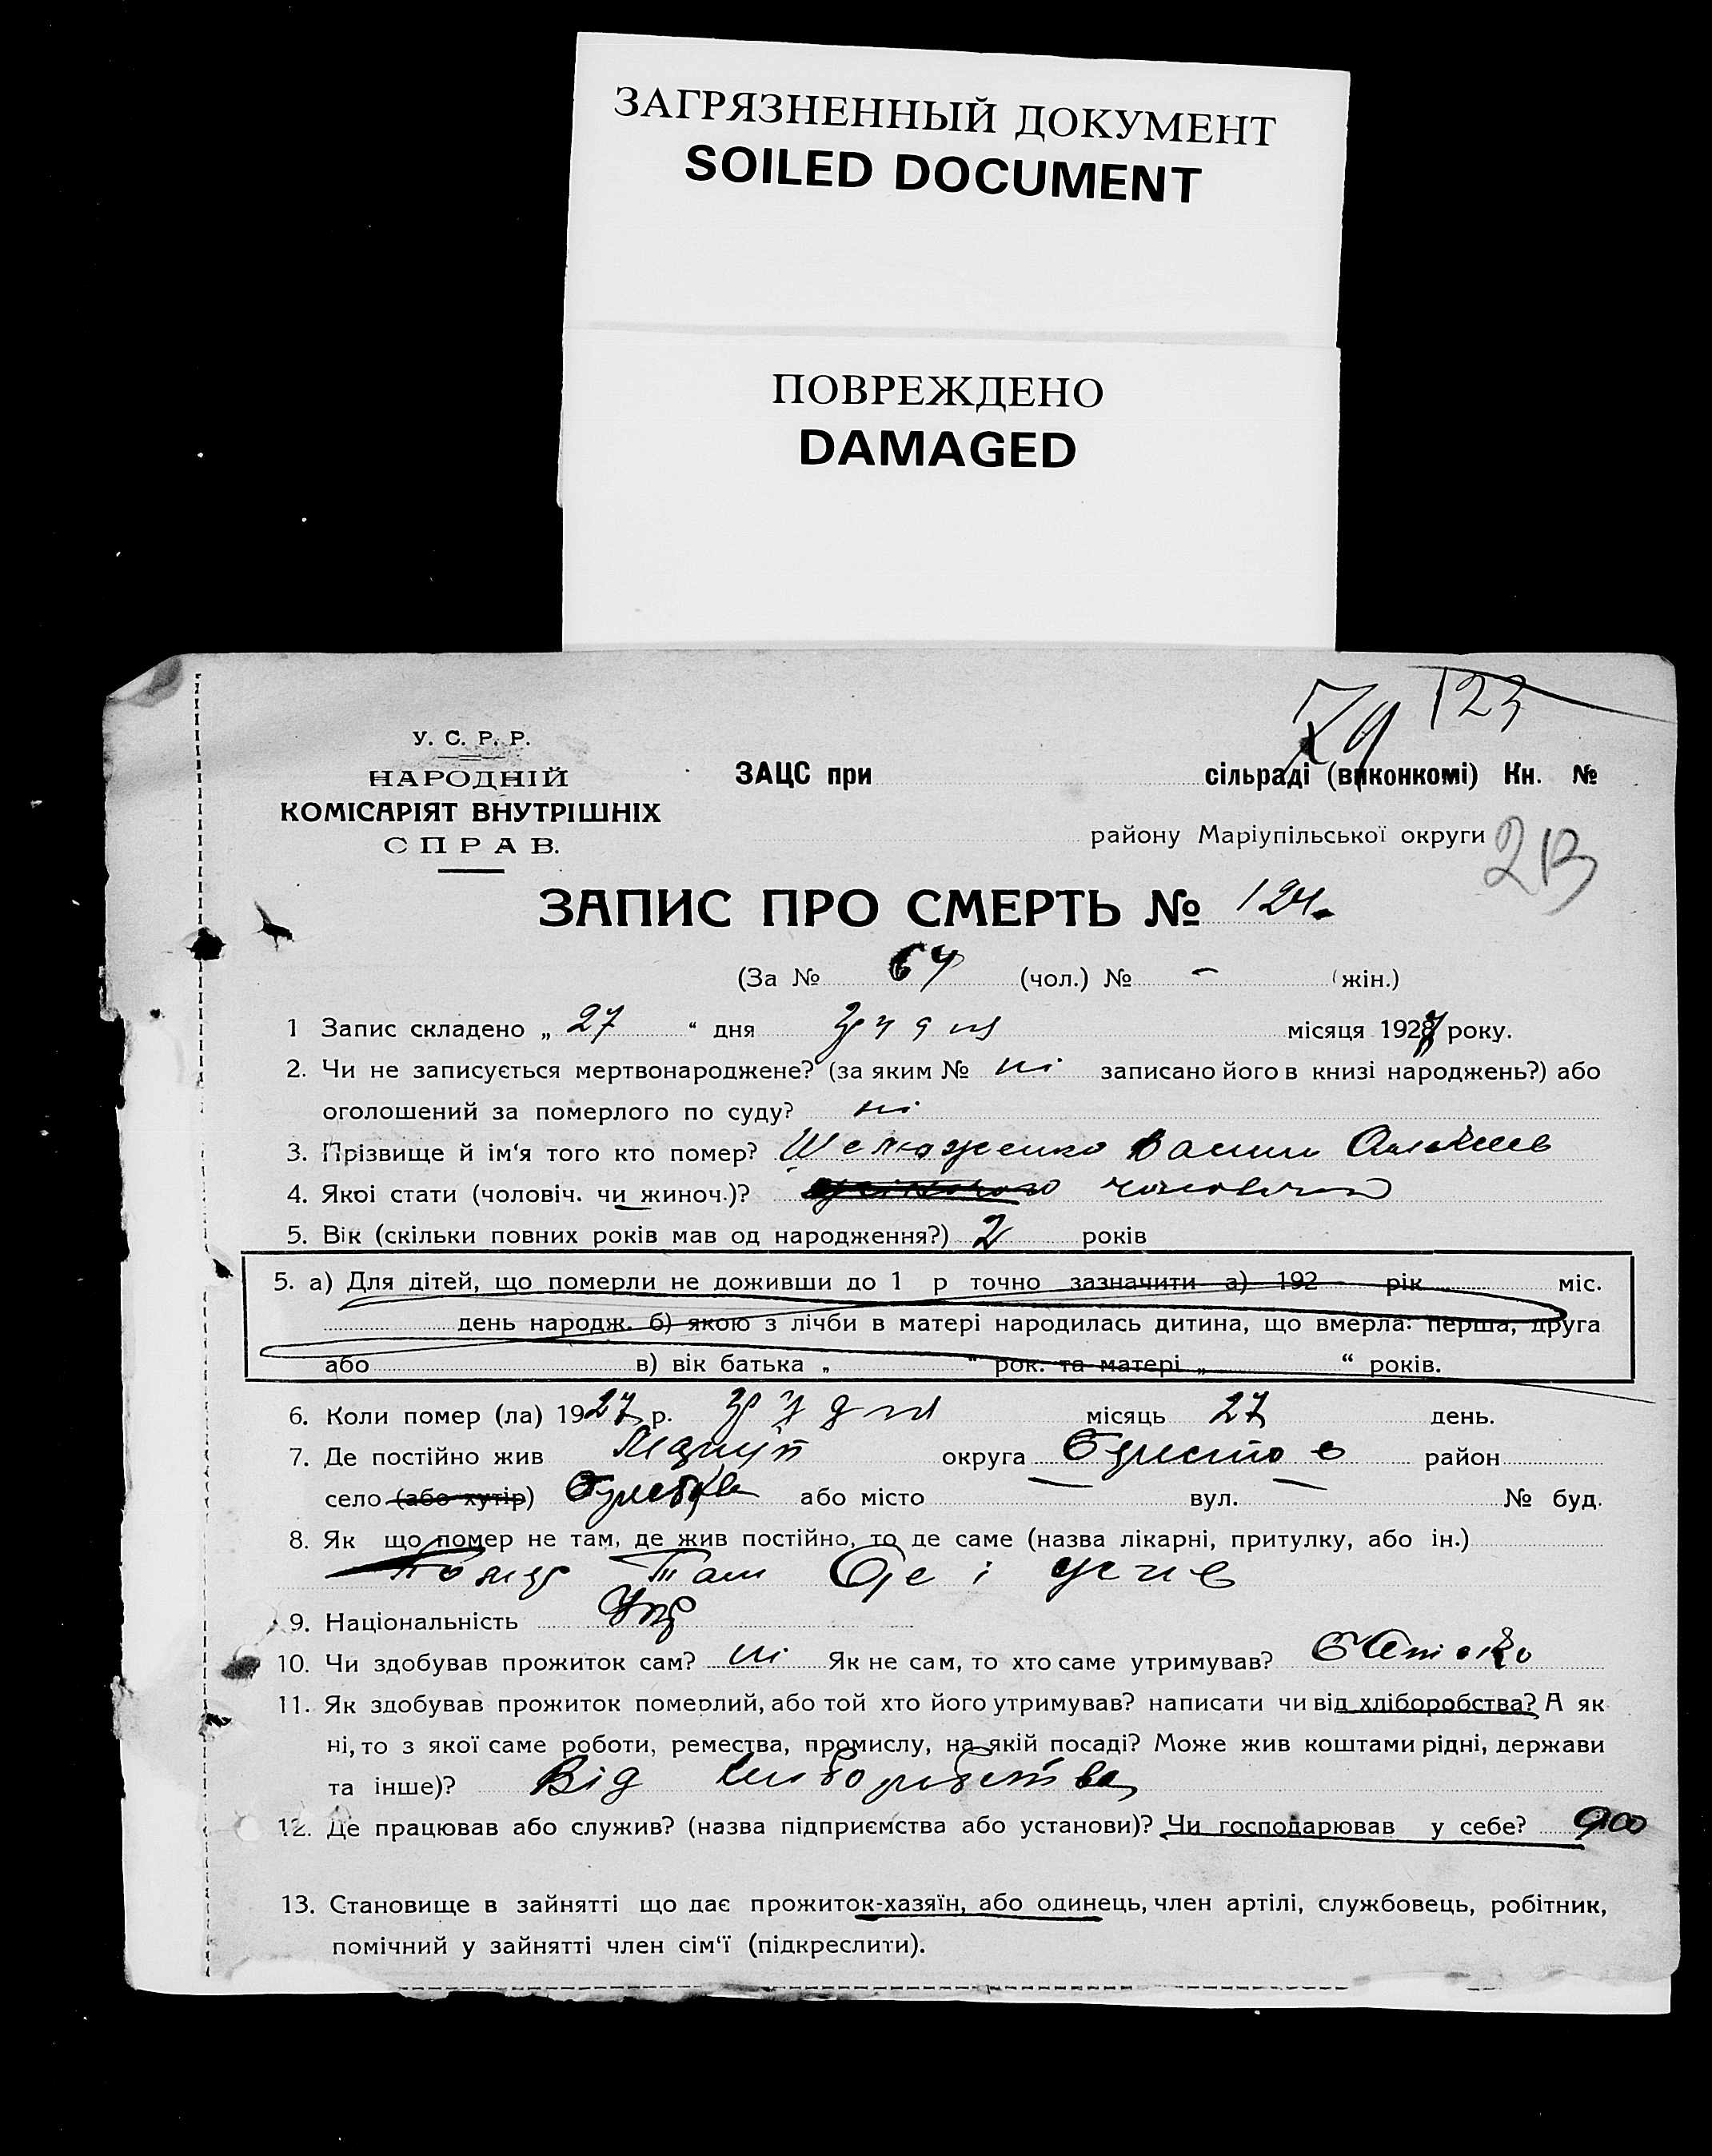 ЗАГРЯЗНЕННЫЙ ДОКУМЕНТ
SOILED DOCUMENT
ПОВРЕЖДЕНО
DAMAGED
123
У. С. Р. Р.
НАРОДНІЙ
КОМІСАРІЯТ ВНУТРІШНІХ
СПРАВ.
ЗАЦС при сільраді (виконкомі) Кн. №
району Маріупільської округи
ЗАПИС ПРО СМЕРТЬ № 124
(За № 64 (чол.) № - (жін.)
1 Запис складено „ 27 “ дня грудня місяця 1927 року.
2. Чи не записується мертвонароджене? (за яким № ні записано його в книзі народжень?) або
оголошений за померлого по суду? ні
3. Прізвище й ім‘я того кто помер?
4. Якоі стати (чоловіч. чи жиноч.)? чоловічої
5. Вік (скільки повних років мав од народження?) 2 років
5. а) Для дітей, що померли не доживши до 1 р точно зазначити а) 192 рік міс.
день народж. б) якою з лічби в матері народилась дитина, що вмерла: перша, друга
або в) вік батька „ “ рок. та матері „ “ років.
6. Коли помер (ла) 1927 р. грудня місяць 27 день.
7. Де постійно жив округа район
село (або хутір) або місто вул. № буд.
8. Як що помер не там, де жив постійно, то де саме (назва лікарні, притулку, або ін.)
там де і жив
9. Національність Укр
10. Чи здобував прожиток сам? ні Як не сам, то хто саме утримував? Батько
11. Як здобував прожиток померлий, або той хто його утримував? написати чи від хліборобства? А як
ні, то з якої саме роботи, ремества, промислу, на якій посаді? Може жив коштами рідні, держави
та інше)? Від хліборобства
12. Де працював або служив? (назва підприємства або установи)? Чи господарював у себе?
13. Становище в зайнятті що дає прожиток-хазяїн, або одинець, член артілі, службовець, робітник,
помічний у зайнятті член сім‘ї (підкреслити).